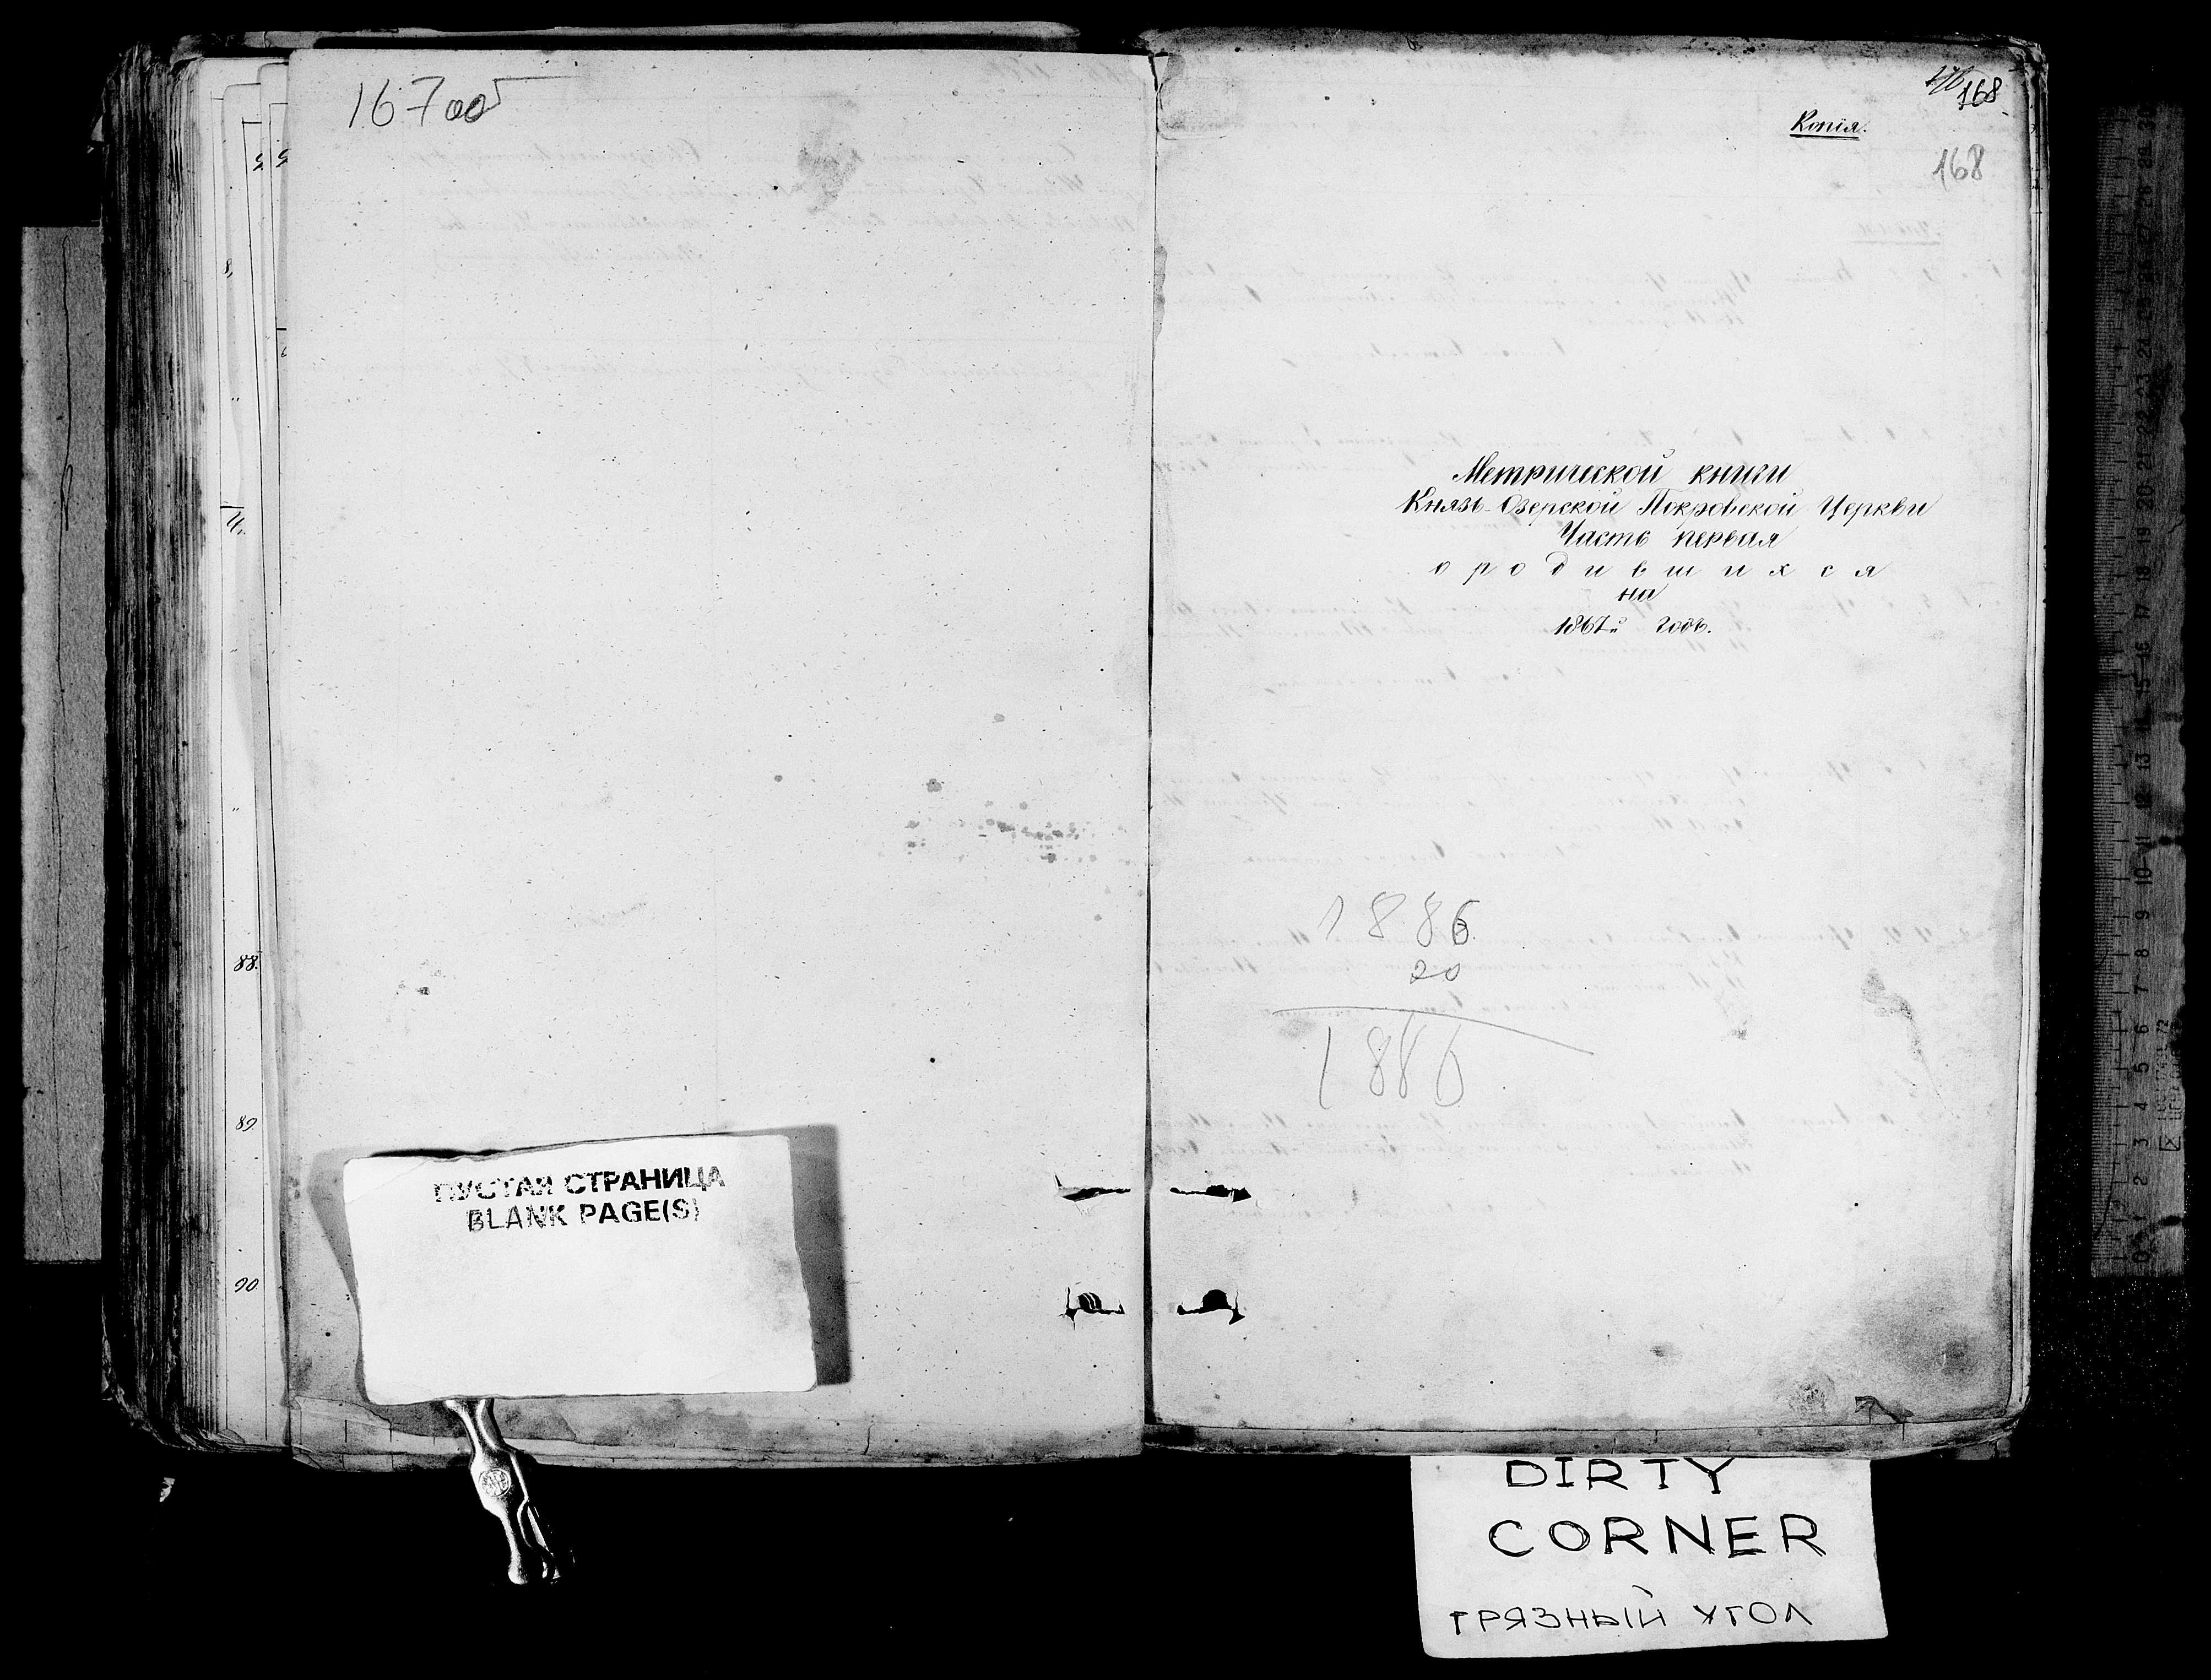 167 об
88.
89.
90.
ПУСТАЯ СТРАНИЦА
BLANK PAGE(S)
168
Копія.
168
Метрической книги
Князь-Озерской Покровской Церкви
Часть первая
о родившихся
на
1867й годъ.
1886
20
1886
DIRTY
CORNER
ГРЯЗНЫЙ УГОЛ